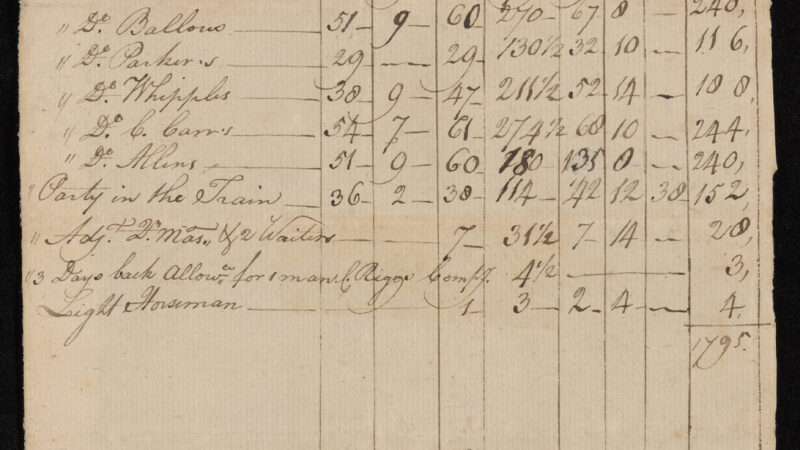 〃 Do. Ballous 51 — 9 — 60 270 — 67 8 — 240,
〃 Do. Parkers 29 — — 29 — 130½ 32 10 — 116,
〃 Do. Whipples 38 9 — 47 211½ 52 14 — 188,
〃 Do. C. Carrs 54 — 7 — 61 — 274½ 68 10 — 244,
〃 Do. Allins 51 9 — 60 180 — 135 8 — 240,
〃 Party in the Train 36 — 2 — 38 — 114 — 42 12 38 152,
〃 Adjt. Dr. Mas〃 & 2 Waiters 7 — 31½ 7 — 14 — 28,
〃 3 Days back Allowce. for 1 man C. Compy. 4½ — 3,
Light Horseman 1 — 3 — 2 — 4 — 4.
1795.